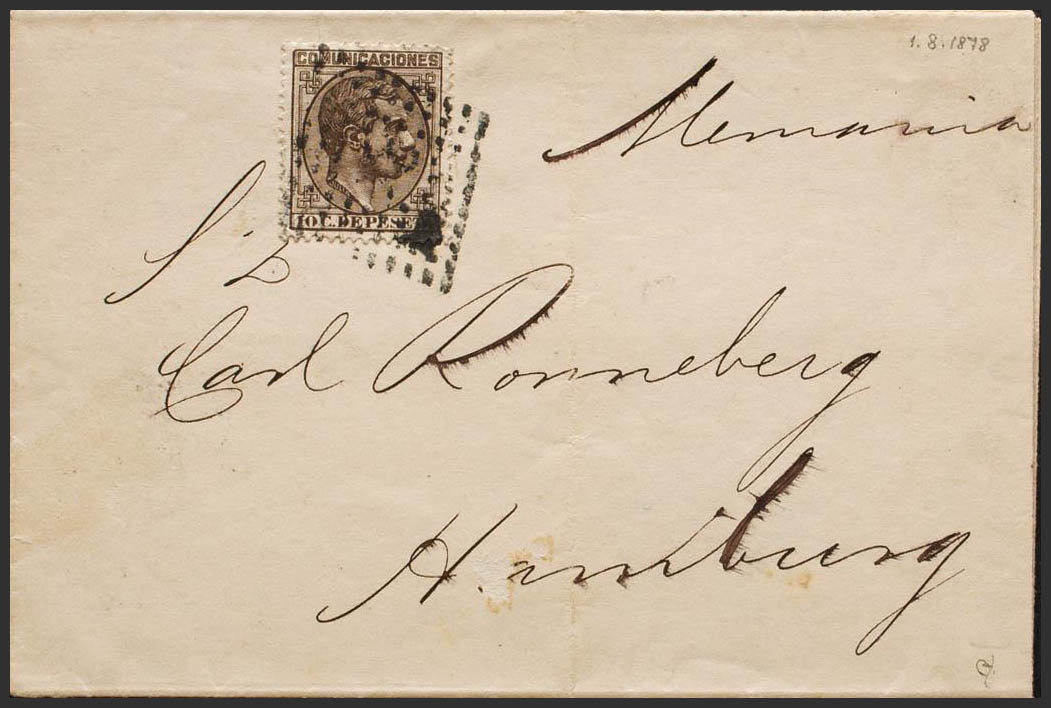 1.8.1878
COMUNICACIONES
10 C. DE PESE
Alemania
Carl Ronneberg
Hamburg